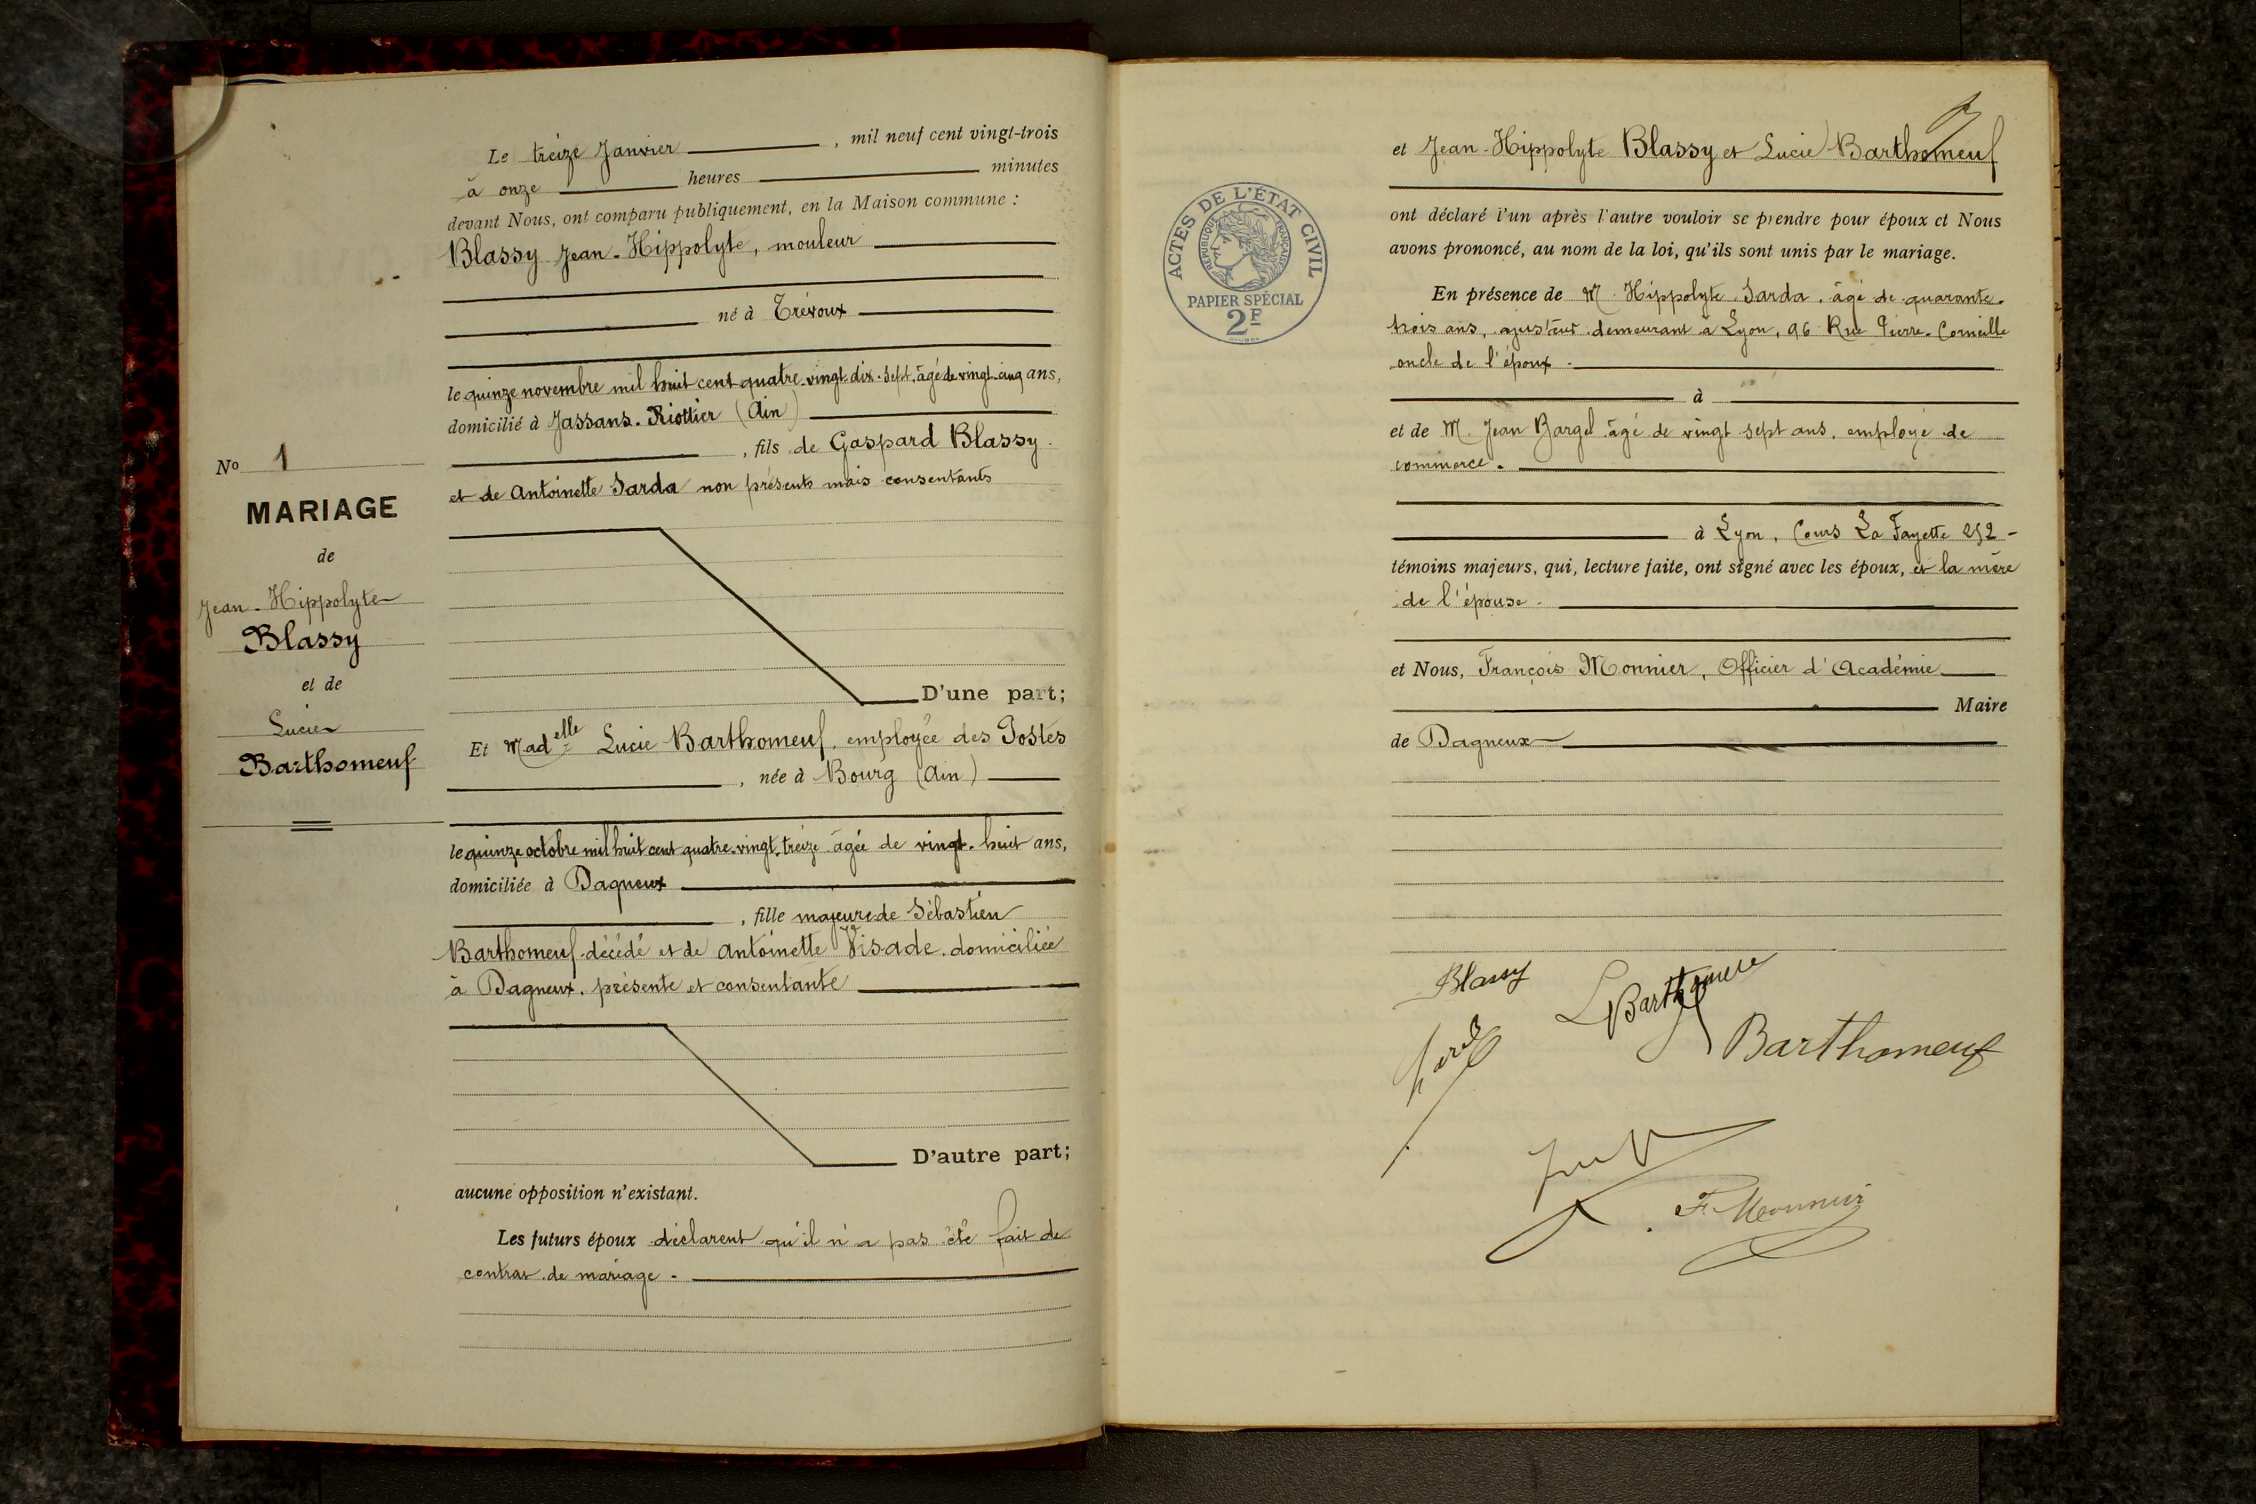 Le treize Janvier, mil neuf cent vingt-trois
à onze heures minutes
devant Nous, ont comparu publiquement, en la Maison commune :
Blassy Jean-Hippolyte, mouleur
né à Trévoux
le quinze novembre mil huit cent quatre-vingt-dix-sept, âgé de vingt-cinq ans,
domicilié à Jassans-Riottier (Ain)
, fils de Gaspard Blassy
et de Antoinette Sarda non présents mais consentants
D'une part;
No 1
MARIAGE
de
Jean-Hippolyte
Blassy
et de
Lucie
Barthomeuf
Et Madelle Lucie Barthomeuf, employée des Postes
, née à Bourg (Ain)
le quinze octobre mil huit cent quatre-vingt-treize âgée de vingt-huit ans,
domiciliée à Dagneux
, fille majeure de Sébastien
Barthomeuf décédé et de Antoinette Visade, domiciliée
à Dagneux, présente et consentante
D'autre part;
aucune opposition n'existant.
Les futurs époux déclarent qu'il n'a pas été fait de
contrat de mariage -
et Jean-Hippolyte Blassy et Lucie Barthomeuf
ACTES DE L'ÉTAT CIVIL
RÉPUBLIQUE FRANÇAISE
PAPIER SPÉCIAL
2F
ont déclaré l'un après l'autre vouloir se prendre pour époux et Nous
avons prononcé, au nom de la loi, qu'ils sont unis par le mariage.
En présence de M. Hippolyte Sarda, âgé de quarante-
trois ans, ajusteur demeurant à Lyon, 96 Rue Pierre-Corneille
oncle de l'époux -
à
et de M. Jean Bargel âgé de vingt sept ans, employé de
commerce.
à Lyon, Cours La Fayette 252 -
témoins majeurs, qui, lecture faite, ont signé avec les époux, et la mère
de l'épouse.
et Nous, François Monnier, Officier d'Académie
Maire
de Dagneux
Blassy
L Barthomeuf
Barthomeuf
F. Monnier